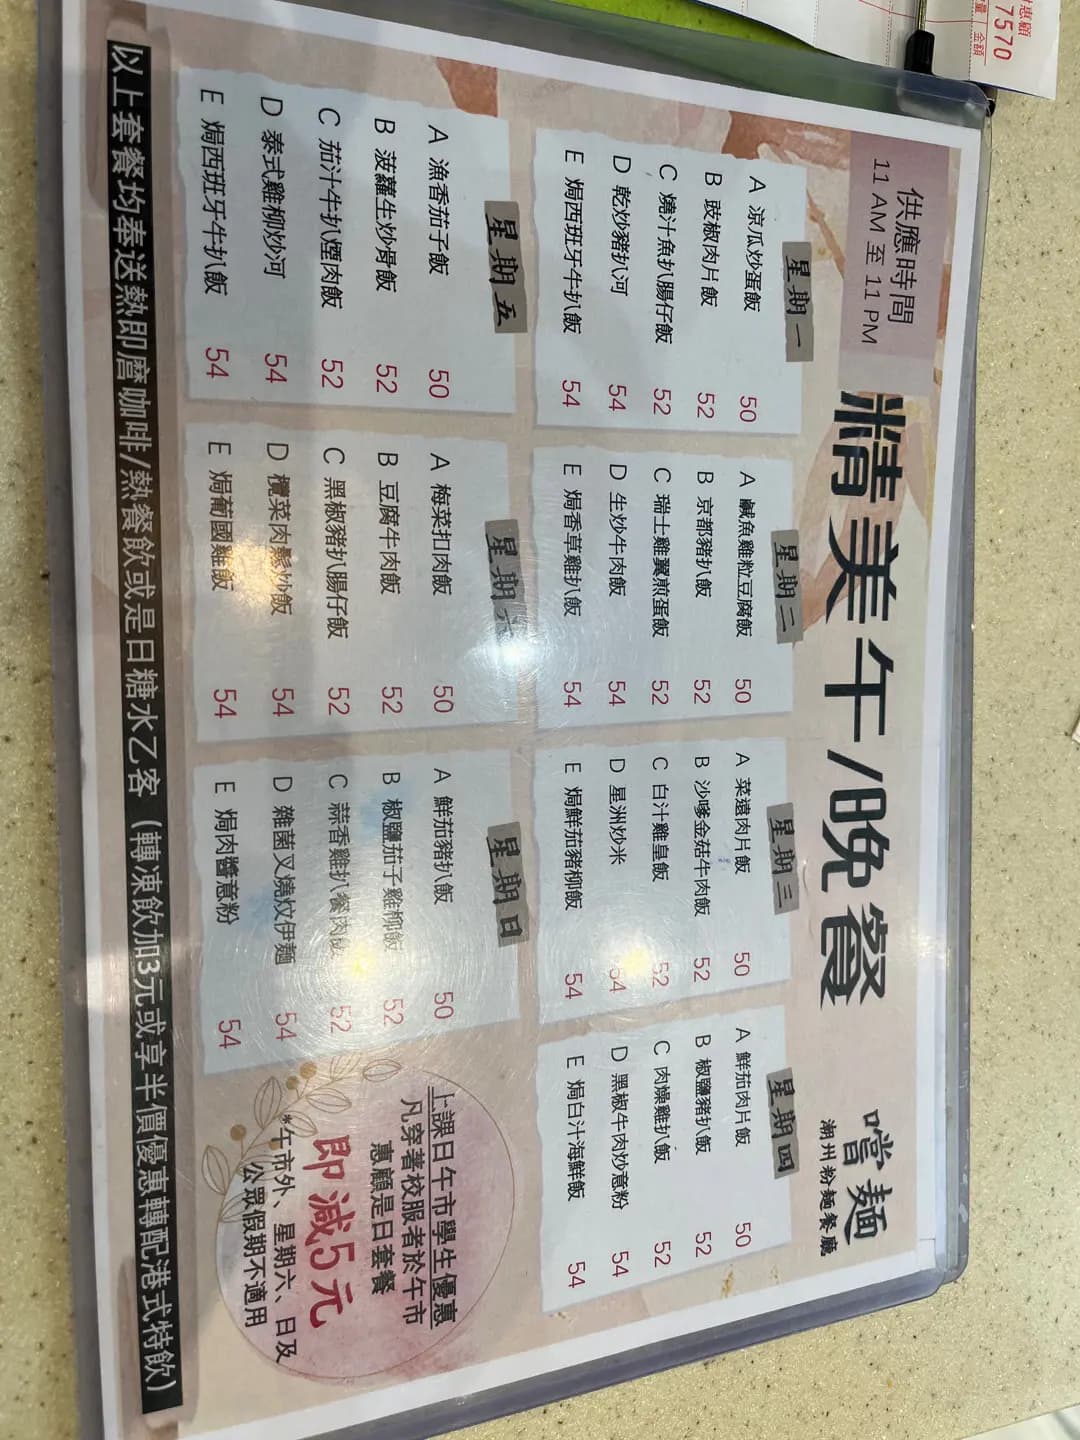 時惠顧
7570
量 金額
供應時間
11 AM 至 11 PM
精美午/晚餐
嚐麵
潮州粉麵餐廳
星期一
A 涼瓜炒蛋飯 50
B 豉椒肉片飯 52
C 燒汁魚扒腸仔飯 52
D 乾炒豬扒河 54
E 焗西班牙牛扒飯 54
星期二
A 鹹魚雞粒豆腐飯 50
B 京都豬扒飯 52
C 瑞士雞翼煎蛋飯 52
D 生炒牛肉飯 54
E 焗香草雞扒飯 54
星期三
A 菜遠肉片飯 50
B 沙嗲金菇牛肉飯 52
C 白汁雞皇飯 52
D 星洲炒米 54
E 焗鮮茄豬柳飯 54
星期四
A 鮮茄肉片飯 50
B 椒鹽豬扒飯 52
C 肉燥雞扒飯 52
D 黑椒牛肉炒意粉 54
E 焗白汁海鮮飯 54
星期五
A 漁香茄子飯 50
B 菠蘿生炒骨飯 52
C 茄汁牛扒煙肉飯 52
D 泰式雞柳炒河 54
E 焗西班牙牛扒飯 54
星期六
A 梅菜扣肉飯 50
B 豆腐牛肉飯 52
C 黑椒豬扒腸仔飯 52
D 欖菜肉鬆炒飯 54
E 焗葡國雞飯 54
星期日
A 鮮茄豬扒飯 50
B 椒鹽茄子雞柳飯 52
C 蒜香雞扒餐肉飯 52
D 雜菌叉燒炆伊麵 54
E 焗肉醬意粉 54
上課日午市學生優惠
凡穿著校服者於午市
惠顧是日套餐
即減5元
*午市外、星期六、日及
公眾假期不適用
以上套餐均奉送熱即磨咖啡/熱餐飲或是日糖水乙客（轉凍飲加3元或享半價優惠轉配港式特飲）